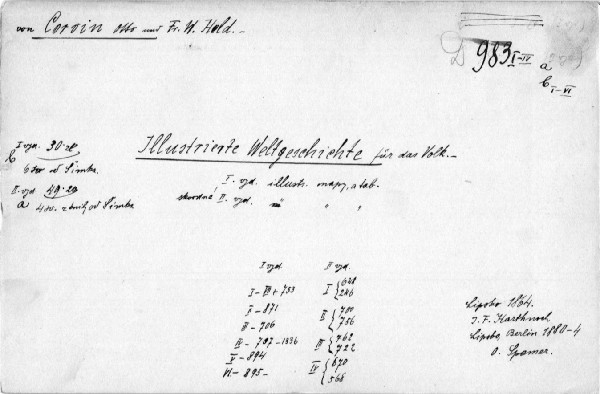 von Corvin Otto und Fr. W. Held.
D 983 I-IV a
b I-VI
I vyd. 30 zł
b 6 sv. od Simka.
II. vyd 49.20
a 4 sv. od Simka
Illustrierte Weltgeschichte für das Volk.
I. vyd. illustr. mapy, a tab.
II. vyd. " " "
I vyd. II vyd.
I - 648
246
I - 871
II 700
756
III - 706
IV - 787-1336 III 762
722
V - 894
VI - 895 - IV 670
568
Lipsko 1864.
J. F. Hartknoch
Lipsko, Berlin 1880-4
O. Spamer.